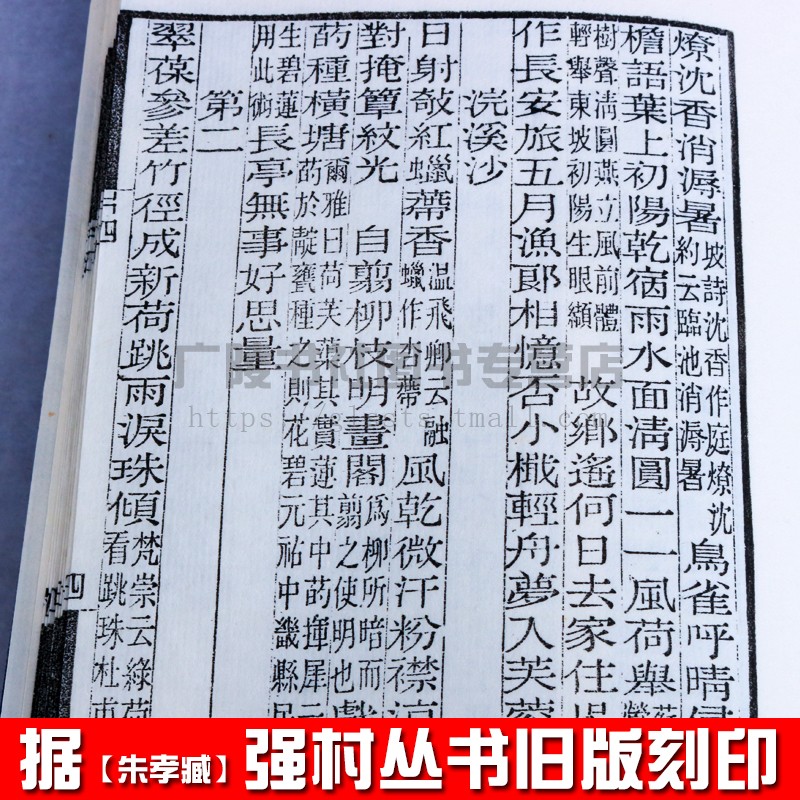 燎沈香消溽暑坡詩沈香作庭燎沈約云臨池消溽暑鳥雀呼晴侵
檐語葉上初陽乾宿雨水面清圓一一風荷舉
樹聲清圓燕立風前體輕舉東坡初陽生眼纈故鄉遙何日去家住吳
作長安旅五月漁郎相憶否小檝輕舟夢入芙蓉
浣溪沙
日射攲紅蠟蔕香溫飛卿云融蠟作杏蔕風乾微汗粉襟涼
對掩簟紋光　自翦柳枝明畫閣爲柳所暗而翦之使明也戲
菂種橫塘爾雅曰荷芙蕖其實蓮其中菂揮犀菂於靛甕種之則花碧元祐中畿縣民
生碧蓮用此術長亭無事好思量
第二
翠葆參差竹徑成新荷跳雨淚珠傾梵崇云綠荷看跳珠杜甫
据【朱孝臧】强村丛书旧版刻印